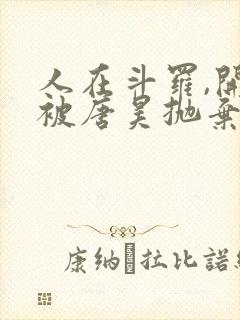 人在斗羅,開
被唐昊抛棄
康納 拉比諾